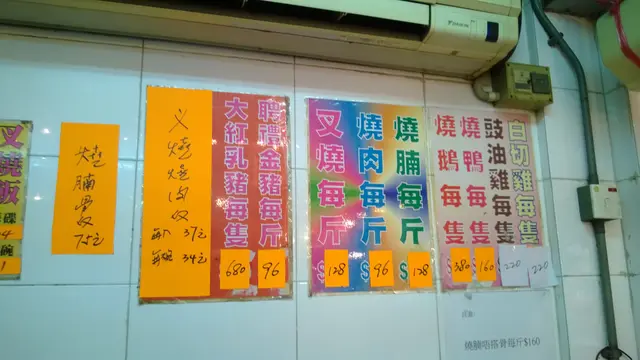 DAIKIN
白切雞每隻
220
豉油雞每隻
220
燒鴨每隻
$160
燒鵝每隻
$380
燒腩每斤
$128
燒肉每斤
$96
叉燒每斤
$128
聘禮金豬每斤
96
大紅乳豬每隻
680
37元
34元
燒腩
75元
叉燒飯
燒腩唔搭骨每斤$160